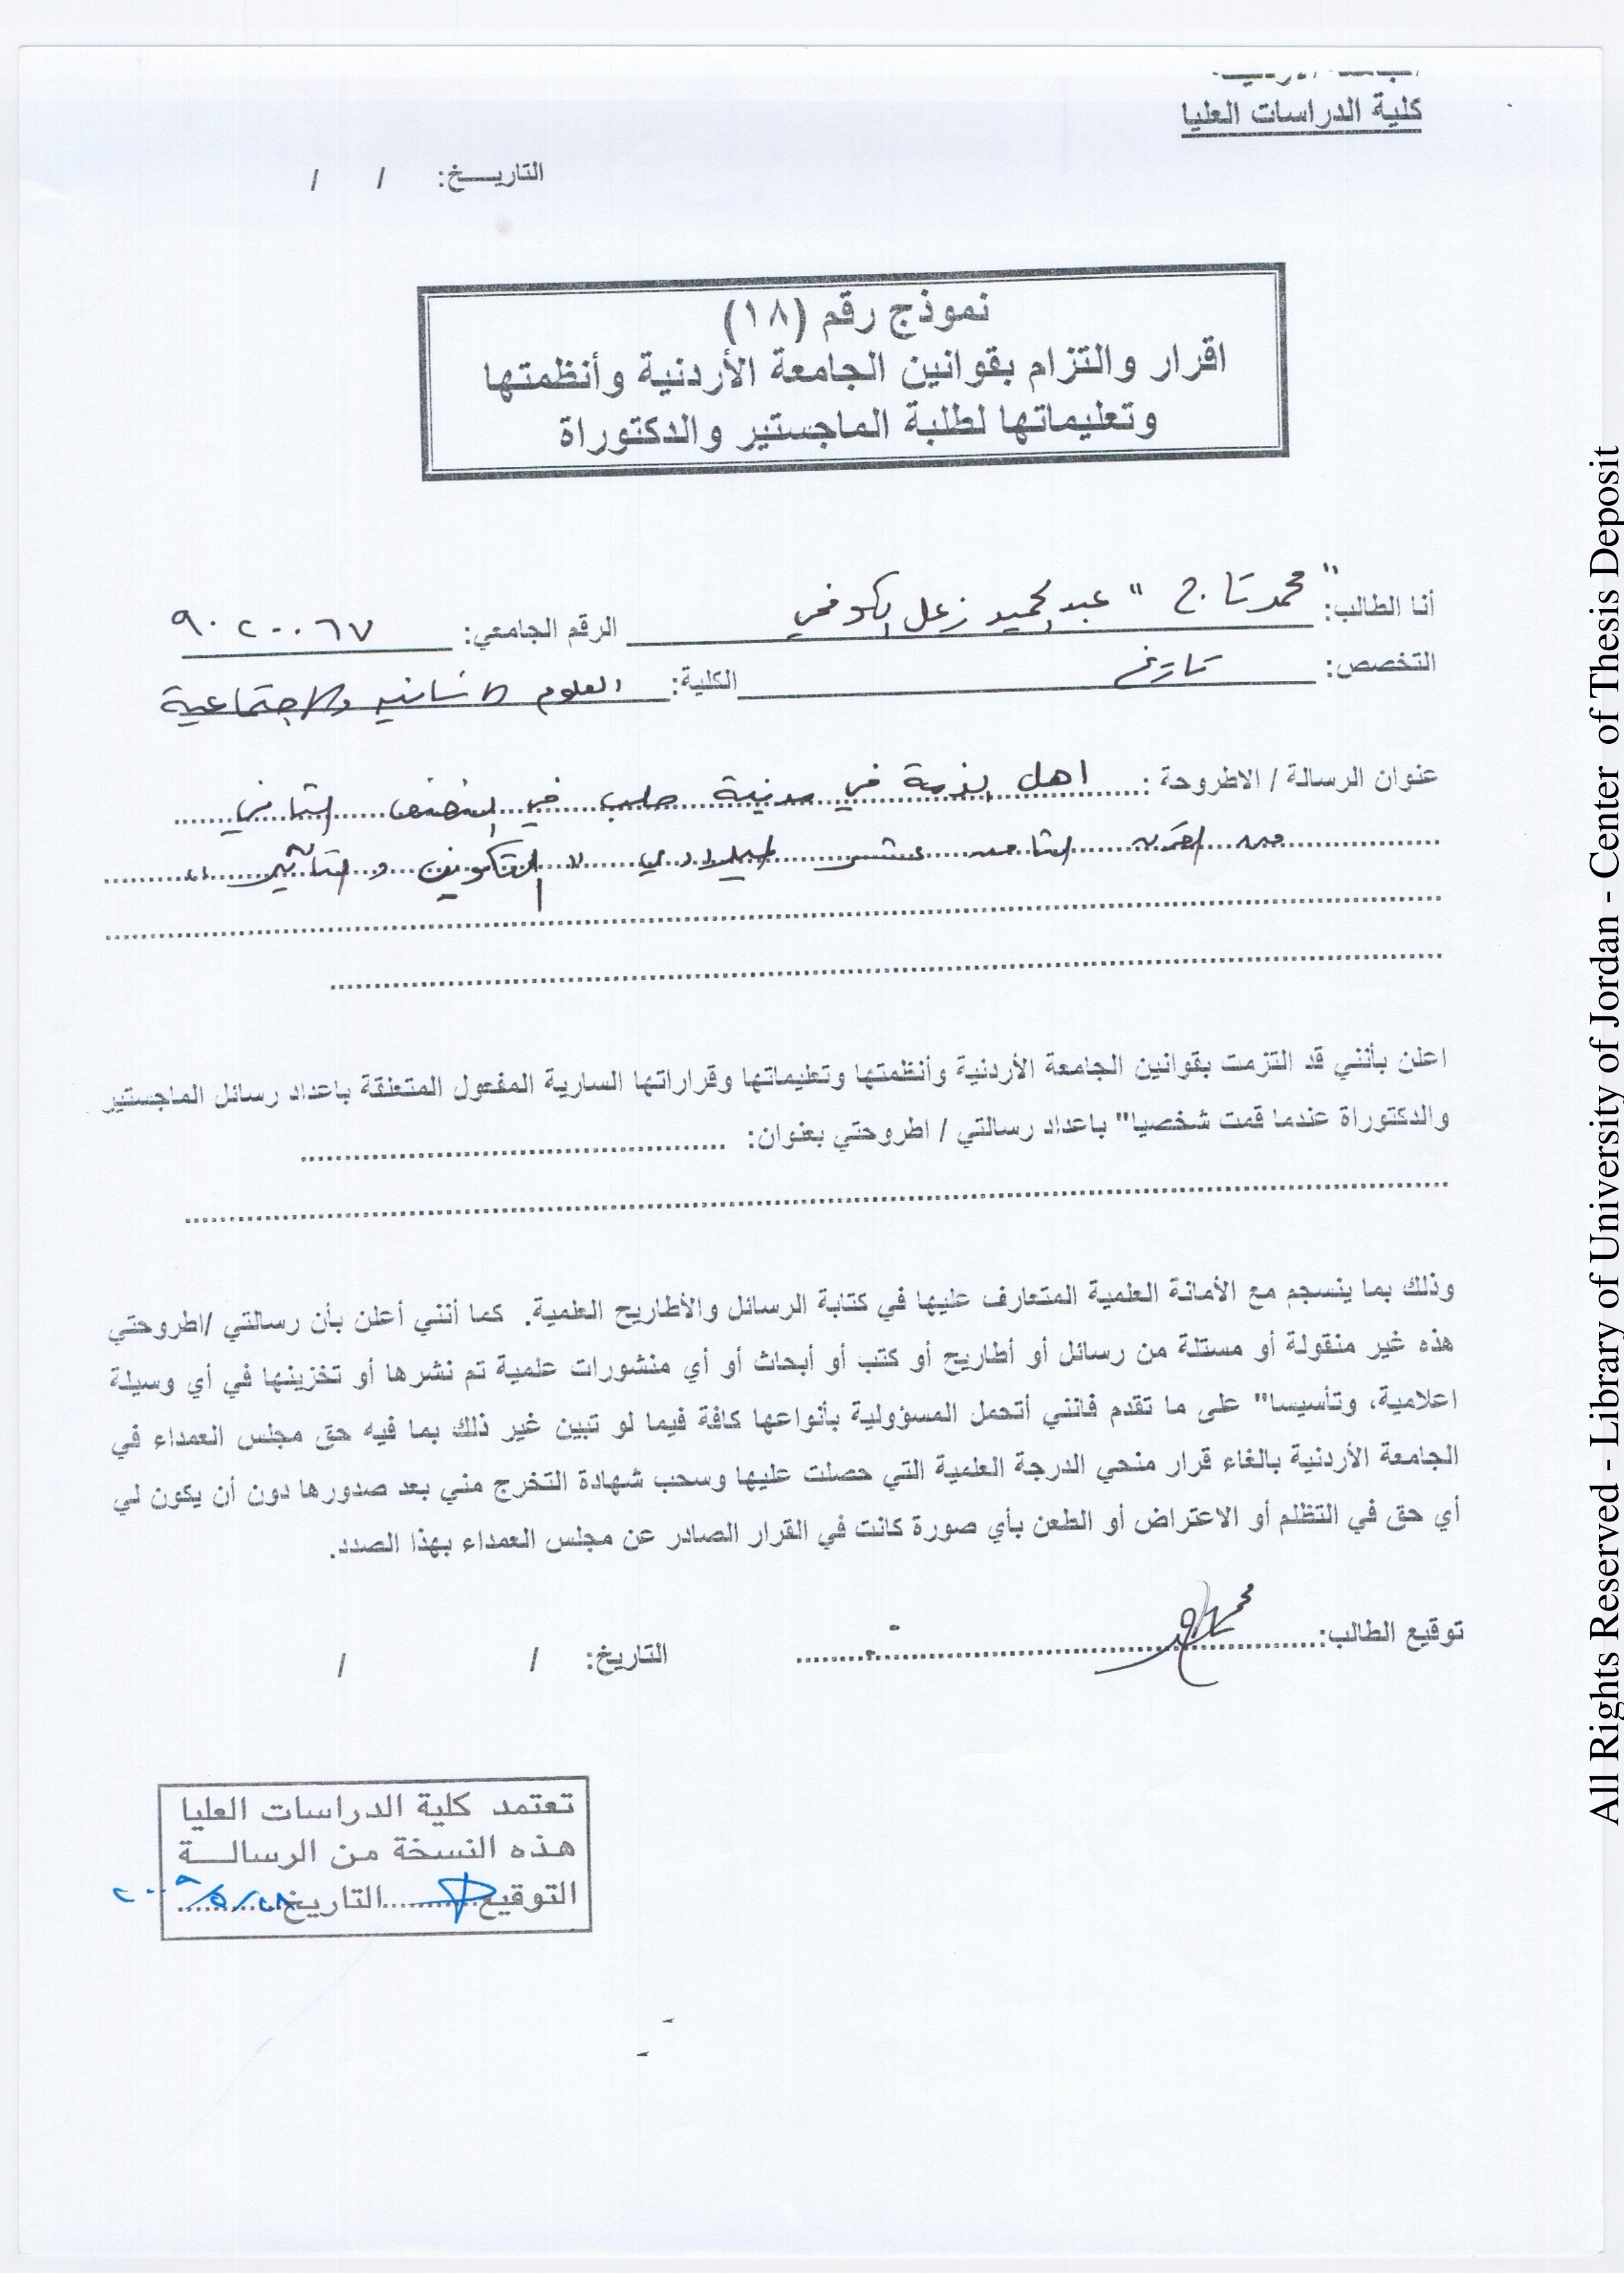 كلية الدراسات العليا
التاريـــخ: / /
نموذج رقم (١٨)
اقرار والتزام بقوانين الجامعة الأردنية وأنظمتها
وتعليماتها لطلبة الماجستير والدكتوراة
أنا الطالب: "محمد تاج" عبد الحميد زعل الكوفحي الرقم الجامعي: ٩٠٢٠٠٦٧
التخصص: تاريخ الكلية: العلوم الانسانيه والاجتماعية
عنوان الرسالة / الاطروحة: اهل الذمة في مدينة حلب في النصف الثاني
من القرن الثامن عشر الميلادي " التكوين والتأثير "
اعلن بأنني قد التزمت بقوانين الجامعة الأردنية وأنظمتها وتعليماتها وقراراتها السارية المفعول المتعلقة باعداد رسائل الماجستير
والدكتوراة عندما قمت شخصيا" باعداد رسالتي / اطروحتي بعنوان: ........................
........................
وذلك بما ينسجم مع الأمانة العلمية المتعارف عليها في كتابة الرسائل والأطاريح العلمية. كما أنني أعلن بأن رسالتي /اطروحتي
هذه غير منقولة أو مستلة من رسائل أو أطاريح أو كتب أو أبحاث أو أي منشورات علمية تم نشرها أو تخزينها في أي وسيلة
اعلامية، وتأسيسا" على ما تقدم فانني أتحمل المسؤولية بأنواعها كافة فيما لو تبين غير ذلك بما فيه حق مجلس العمداء في
الجامعة الأردنية بالغاء قرار منحي الدرجة العلمية التي حصلت عليها وسحب شهادة التخرج مني بعد صدورها دون أن يكون لي
أي حق في التظلم أو الاعتراض أو الطعن بأي صورة كانت في القرار الصادر عن مجلس العمداء بهذا الصدد.
توقيع الطالب: ........................ التاريخ: / /
تعتمد كلية الدراسات العليا
هذه النسخة من الرسالــة
التوقيع........التاريخ ٢٨/٥/٢٠٠٩
All Rights Reserved - Library of University of Jordan - Center of Thesis Deposit